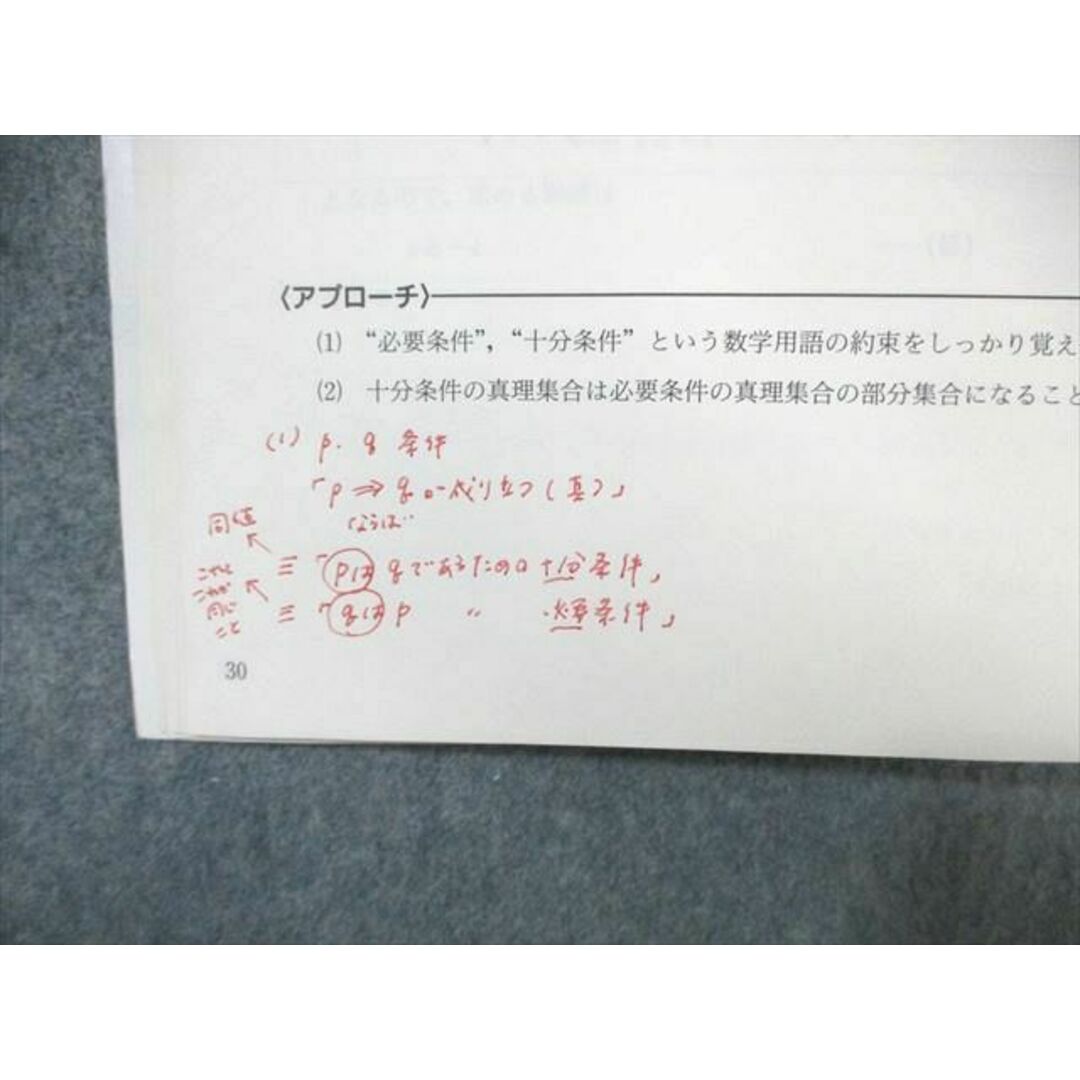 〈アプローチ〉
(1) “必要条件”，“十分条件” という数学用語の約束をしっかり覚え
(2) 十分条件の真理集合は必要条件の真理集合の部分集合になること
(1) p. q 条件
「p ⇒ q が成り立つ(真)」
ならば
同値
≡「pは qであるための 十分条件」
≡「qは p 〃 必要条件」
同じ
こと
30